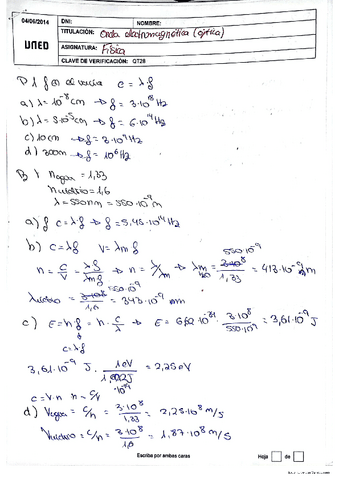 04/06/2014
UNED
DNI: NOMBRE:
TITULACIÓN: Onda electromagnética (óptica)
ASIGNATURA: Física
CLAVE DE VERIFICACIÓN: QT28
f en el vacío c = λf
a) λ = 10⁻⁸ cm → f = 3·10¹⁸ Hz
b) λ = 5·10⁻⁵ cm → f = 6·10¹⁴ Hz
c) 10 cm → f = 3·10⁹ Hz
d) 300m → f = 10⁶ Hz
n agua = 1,33
n vidrio = 1,6
λ = 550 nm = 550·10⁻⁹ m
a) f c = λf → f = 5,45·10¹⁴ Hz
b) c = λf v = λm f
n = c/v = λf/λm f → n = λ/λm → λm H2O = 550·10⁻⁹/1,33 = 413·10⁻⁹ m
λvidrio = 550·10⁻⁹/1,6 = 343·10⁻⁹ m
c) E = h·f = h·c/λ → E = 6,62·10⁻³⁴ · 3·10⁸/550·10⁻⁹ = 3,61·10⁻¹⁹ J
c = λf
3,61·10⁻¹⁹ J · 1eV/1,602J·10⁻¹⁹ = 2,25eV
c = v·n n = c/v
d) Vagua = c/n = 3·10⁸/1,33 = 2,25·10⁸ m/s
Vvidrio = c/n = 3·10⁸/1,6 = 1,87·10⁸ m/s
Escriba por ambas caras
Hoja de